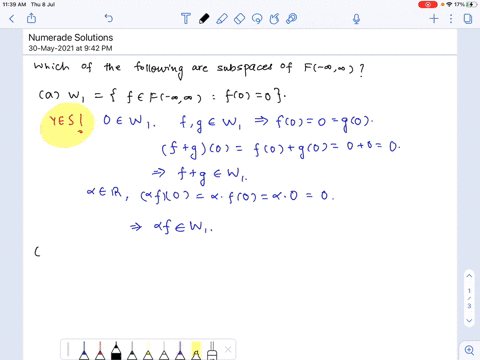 11:39 AM Thu 8 Jul
17%
Numerade Solutions
30-May-2021 at 9:42 PM
Which of the following are subspaces of F(-∞,∞)?
(a) W₁ = { f ∈ F(-∞,∞) : f(0) = 0 }.
YES! 0 ∈ W₁. f, g ∈ W₁ ⇒ f(0) = 0 = g(0).
(f+g)(0) = f(0) + g(0) = 0 + 0 = 0.
⇒ f+g ∈ W₁.
α ∈ ℝ, (αf)(0) = α · f(0) = α · 0 = 0.
⇒ αf ∈ W₁.
(
1
3